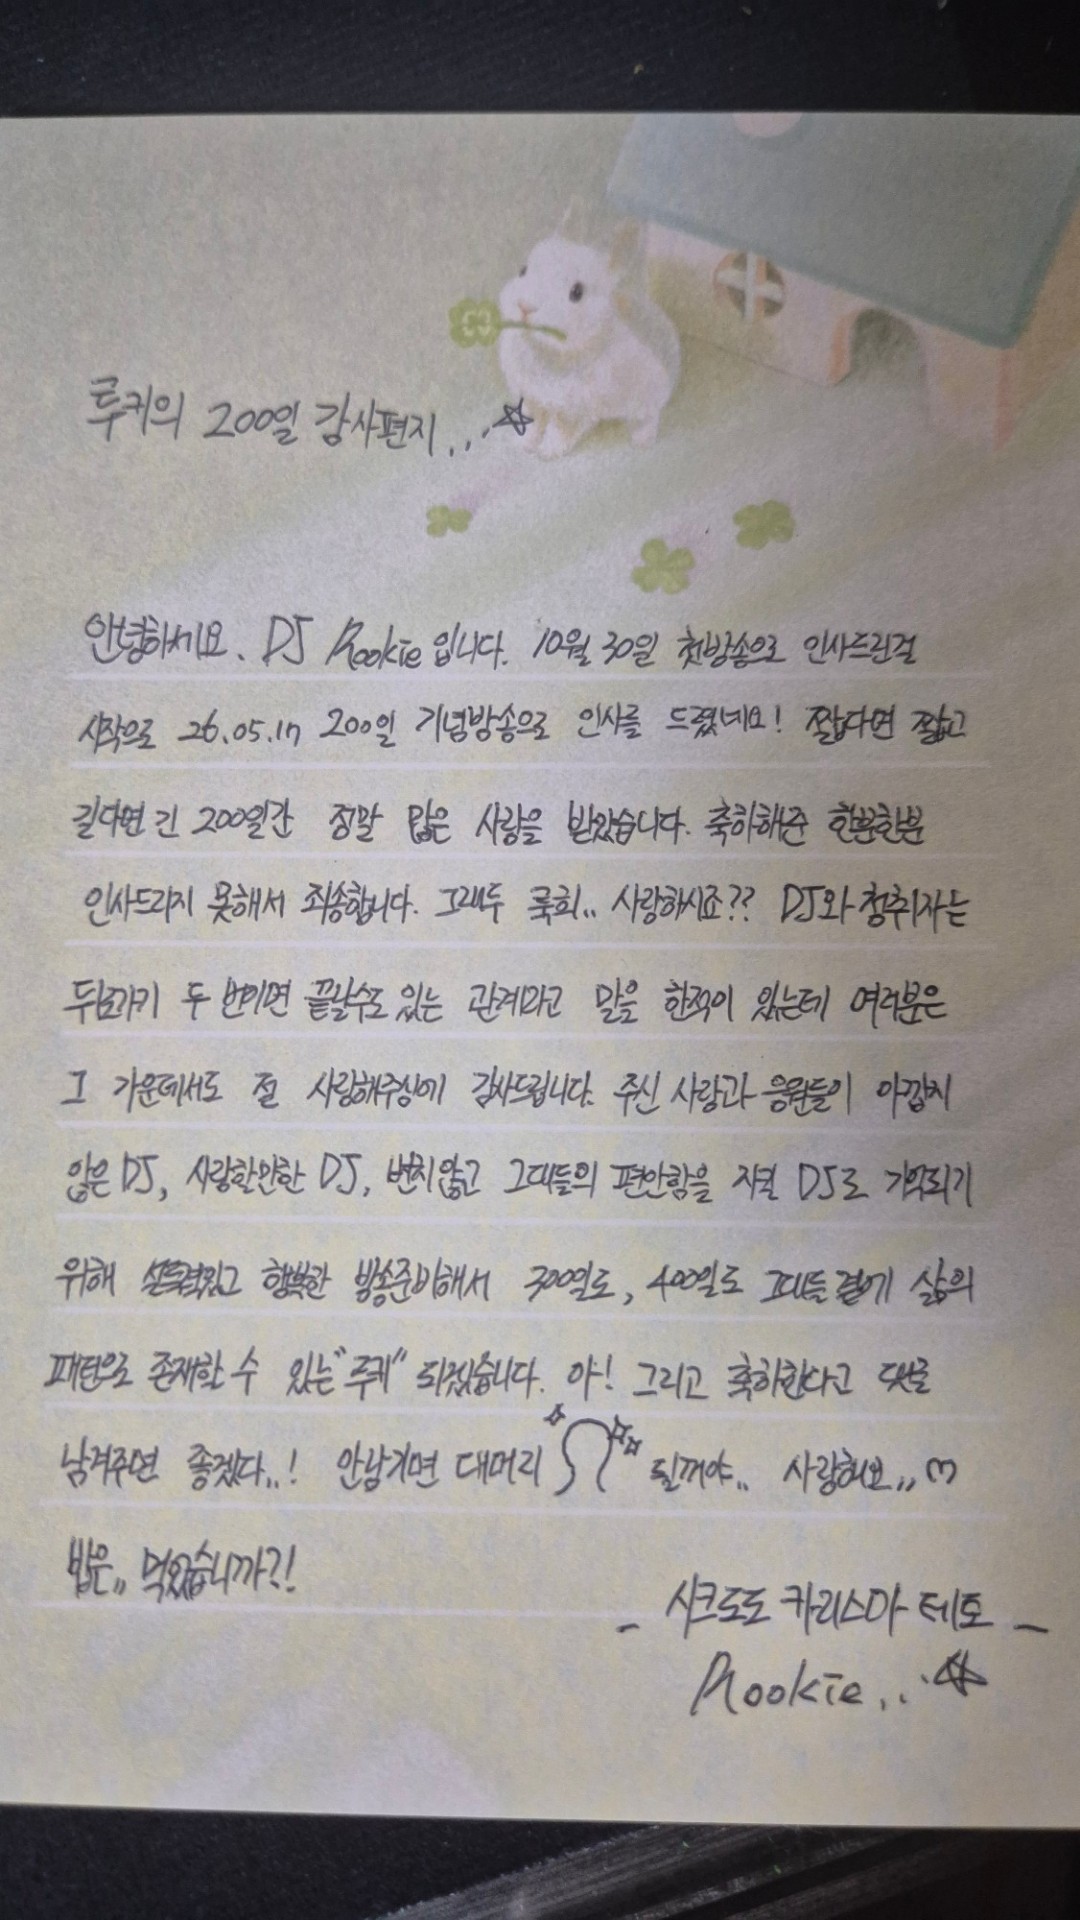 루키의 200일 감사편지...☆
안녕하세요. DJ Rookie입니다. 10월 30일 첫방송으로 인사드린걸
시작으로 26.05.17 200일 기념방송으로 인사를 드렸네요! 짧다면 짧고
길다면 긴 200일간 정말 많은 사랑을 받았습니다. 축하해준 한분한분
인사드리지 못해서 죄송합니다. 그래두 룩희.. 사랑하시죠?? DJ와 청취자는
뒤로가기 두 번이면 끝날수도 있는 관계라고 말을 한적이 있는데 여러분은
그 가운데서도 절 사랑해주심에 감사드립니다. 주신 사랑과 응원들이 아깝지
않은 DJ, 사랑할만한 DJ, 변치않고 그대들의 편안함을 지킬 DJ로 기억되기
위해 행복한 방송준비해서 300일도, 400일도 그대들 곁에 삶의
패턴으로 존재할 수 있는 "루키" 되겠습니다. 아! 그리고 축하한다고 댓글
남겨주면 좋겠다..! 안남기면 대머리 될꺼야.. 사랑해요,, ♡
밥은,, 먹었습니까?!
- 시크도도 카리스마 테토 -
Rookie...☆